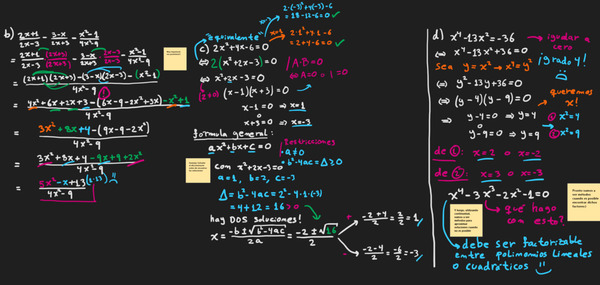 b) (2x+1)/(2x-3) - (3-x)/(2x+3) - (x²-1)/(4x²-9)
= (2x+1)/(2x-3) (2x+3)/(2x+3) - (3-x)/(2x+3) (2x-3)/(2x-3) - (x²-1)/(4x²-9)
= ((2x+1)(2x+3)-(3-x)(2x-3)-(x²-1))/(4x²-9)
= (4x²+6x+2x+3-(6x-9-2x²+3x)-x²+1)/(4x²-9)
= (3x²+8x+4-(9x-9-2x²))/(4x²-9)
= (3x²+8x+4-9x+9+2x²)/(4x²-9)
= (5x²-x+13)/(4x²-9)
"equivalente"
2·(-3)²+4(-3)-6
=18-12-6=0 ✓
c) 2x²+4x-6=0
x=1 → 2·1²+4·1-6
=2+4-6=0 ✓
⇔ 2(x²+2x-3)=0
⇔ x²+2x-3=0
A·B=0
(2≠0) (x-1)(x+3)=0
x-1=0 ⇒ x=1
o
x+3=0 ⇒ x=-3
fórmula general:
ax²+bx+c=0
Restricciones
·a≠0
·b²-4ac=Δ≥0
con x²+2x-3=0
a=1, b=2, c=-3
Δ=b²-4ac=2²-4·1·(-3)
=4+12=16>0
hay DOS soluciones!
x= (-b±√(b²-4ac))/2a = (-2±√16)/2
+ (-2+4)/2=2/2=1
- (-2-4)/2=-6/2=-3
d) x⁴-13x²=-36 → igualar a cero
⇔ x⁴-13x²+36=0 ¡grado 4!
sea y=x² → x⁴=y²
⇔ y²-13y+36=0
queremos x!
⇔ (y-4)(y-9)=0
⇒ y-4=0 ⇒ y=4 ① x²=4
o
y-9=0 ⇒ y=9 ② x²=9
de ①: x=2 o x=-2
de ②: x=3 o x=-3
x⁴-3x³-2x²-1=0
¿qué hago con esto?
debe ser factorizable
entre polinomios lineales
o cuadráticos